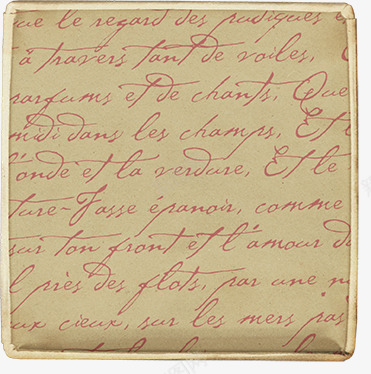 ue le regard des pudiques e
à travers tant de voiles, C
parfums et de chants, Que
midi dans les champs, Et l
l'onde et la verdure, Et le
ture-Fasse épanoir, comme
sur ton front et l'amour d
l près des flots, par une n
ux cieux, sur les mers pas